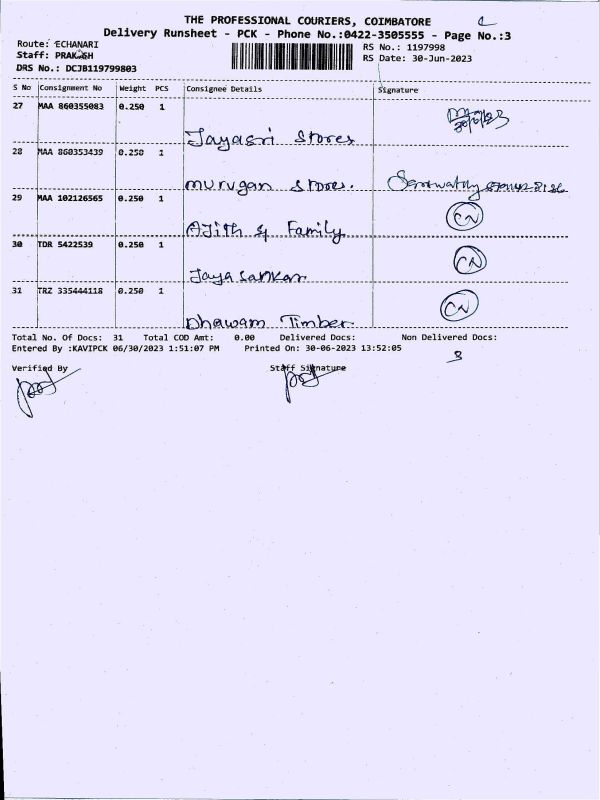 THE PROFESSIONAL COURIERS, COIMBATORE
Delivery Runsheet - PCK - Phone No.:0422-3505555 - Page No.:3
Route: ECHANARI RS No.: 1197998
Staff: PRAKASH RS Date: 30-Jun-2023
DRS No.: DCJB119799803
S No Consignment No Weight PCS Consignee Details Signature
27 MAA 860355083 0.250 1
Jayasri Stores 30/6/23
28 MAA 860353439 0.250 1
Murugan Stores.
29 MAA 102126565 0.250 1 CN
AJith & Family
30 TDR 5422539 0.250 1 CN
Jaya Sankar
31 TRZ 335444118 0.250 1 CN
Dhawam Timber
Total No. Of Docs: 31 Total COD Amt: 0.00 Delivered Docs: Non Delivered Docs:
Entered By :KAVIPCK 06/30/2023 1:51:07 PM Printed On: 30-06-2023 13:52:05
3
Verified By Staff Signature